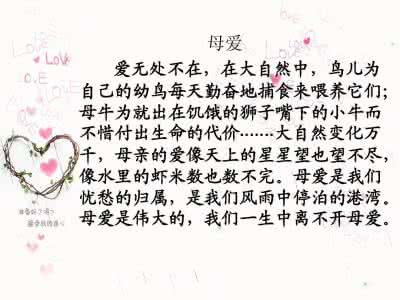 母爱
爱无处不在，在大自然中，鸟儿为
自己的幼鸟每天勤奋地捕食来喂养它们；
母牛为就出在饥饿的狮子嘴下的小牛而
不惜付出生命的代价.......大自然变化万
千，母亲的爱像天上的星星望也望不尽，
像水里的虾米数也数不完。母爱是我们
忧愁的归属，是我们风雨中停泊的港湾。
母爱是伟大的，我们一生中离不开母爱。
LOVE